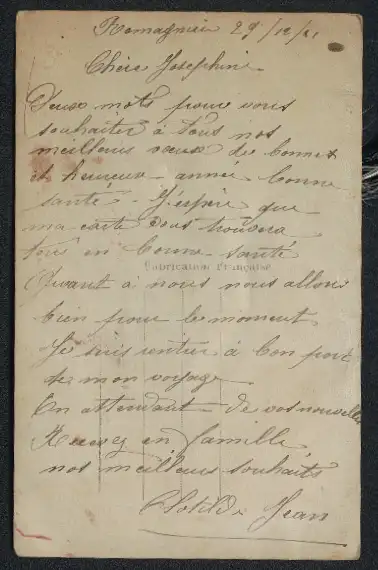 Romagnieu 29/12/21
Chère Josephine
Deux mots pour vous
souhaiter à tous nos
meilleurs vœux de bonne
et heureuse année bonne
santé. J'éspère que
ma carte vous trouvera
tous en bonne santé
Fabrication Française
Quant à nous nous allons
bien pour le moment
Je suis rentier à bon port
de mon voyage
En attendant de vos nouvelles
Recevez en famille
nos meilleurs souhaits
Clotilde Jean